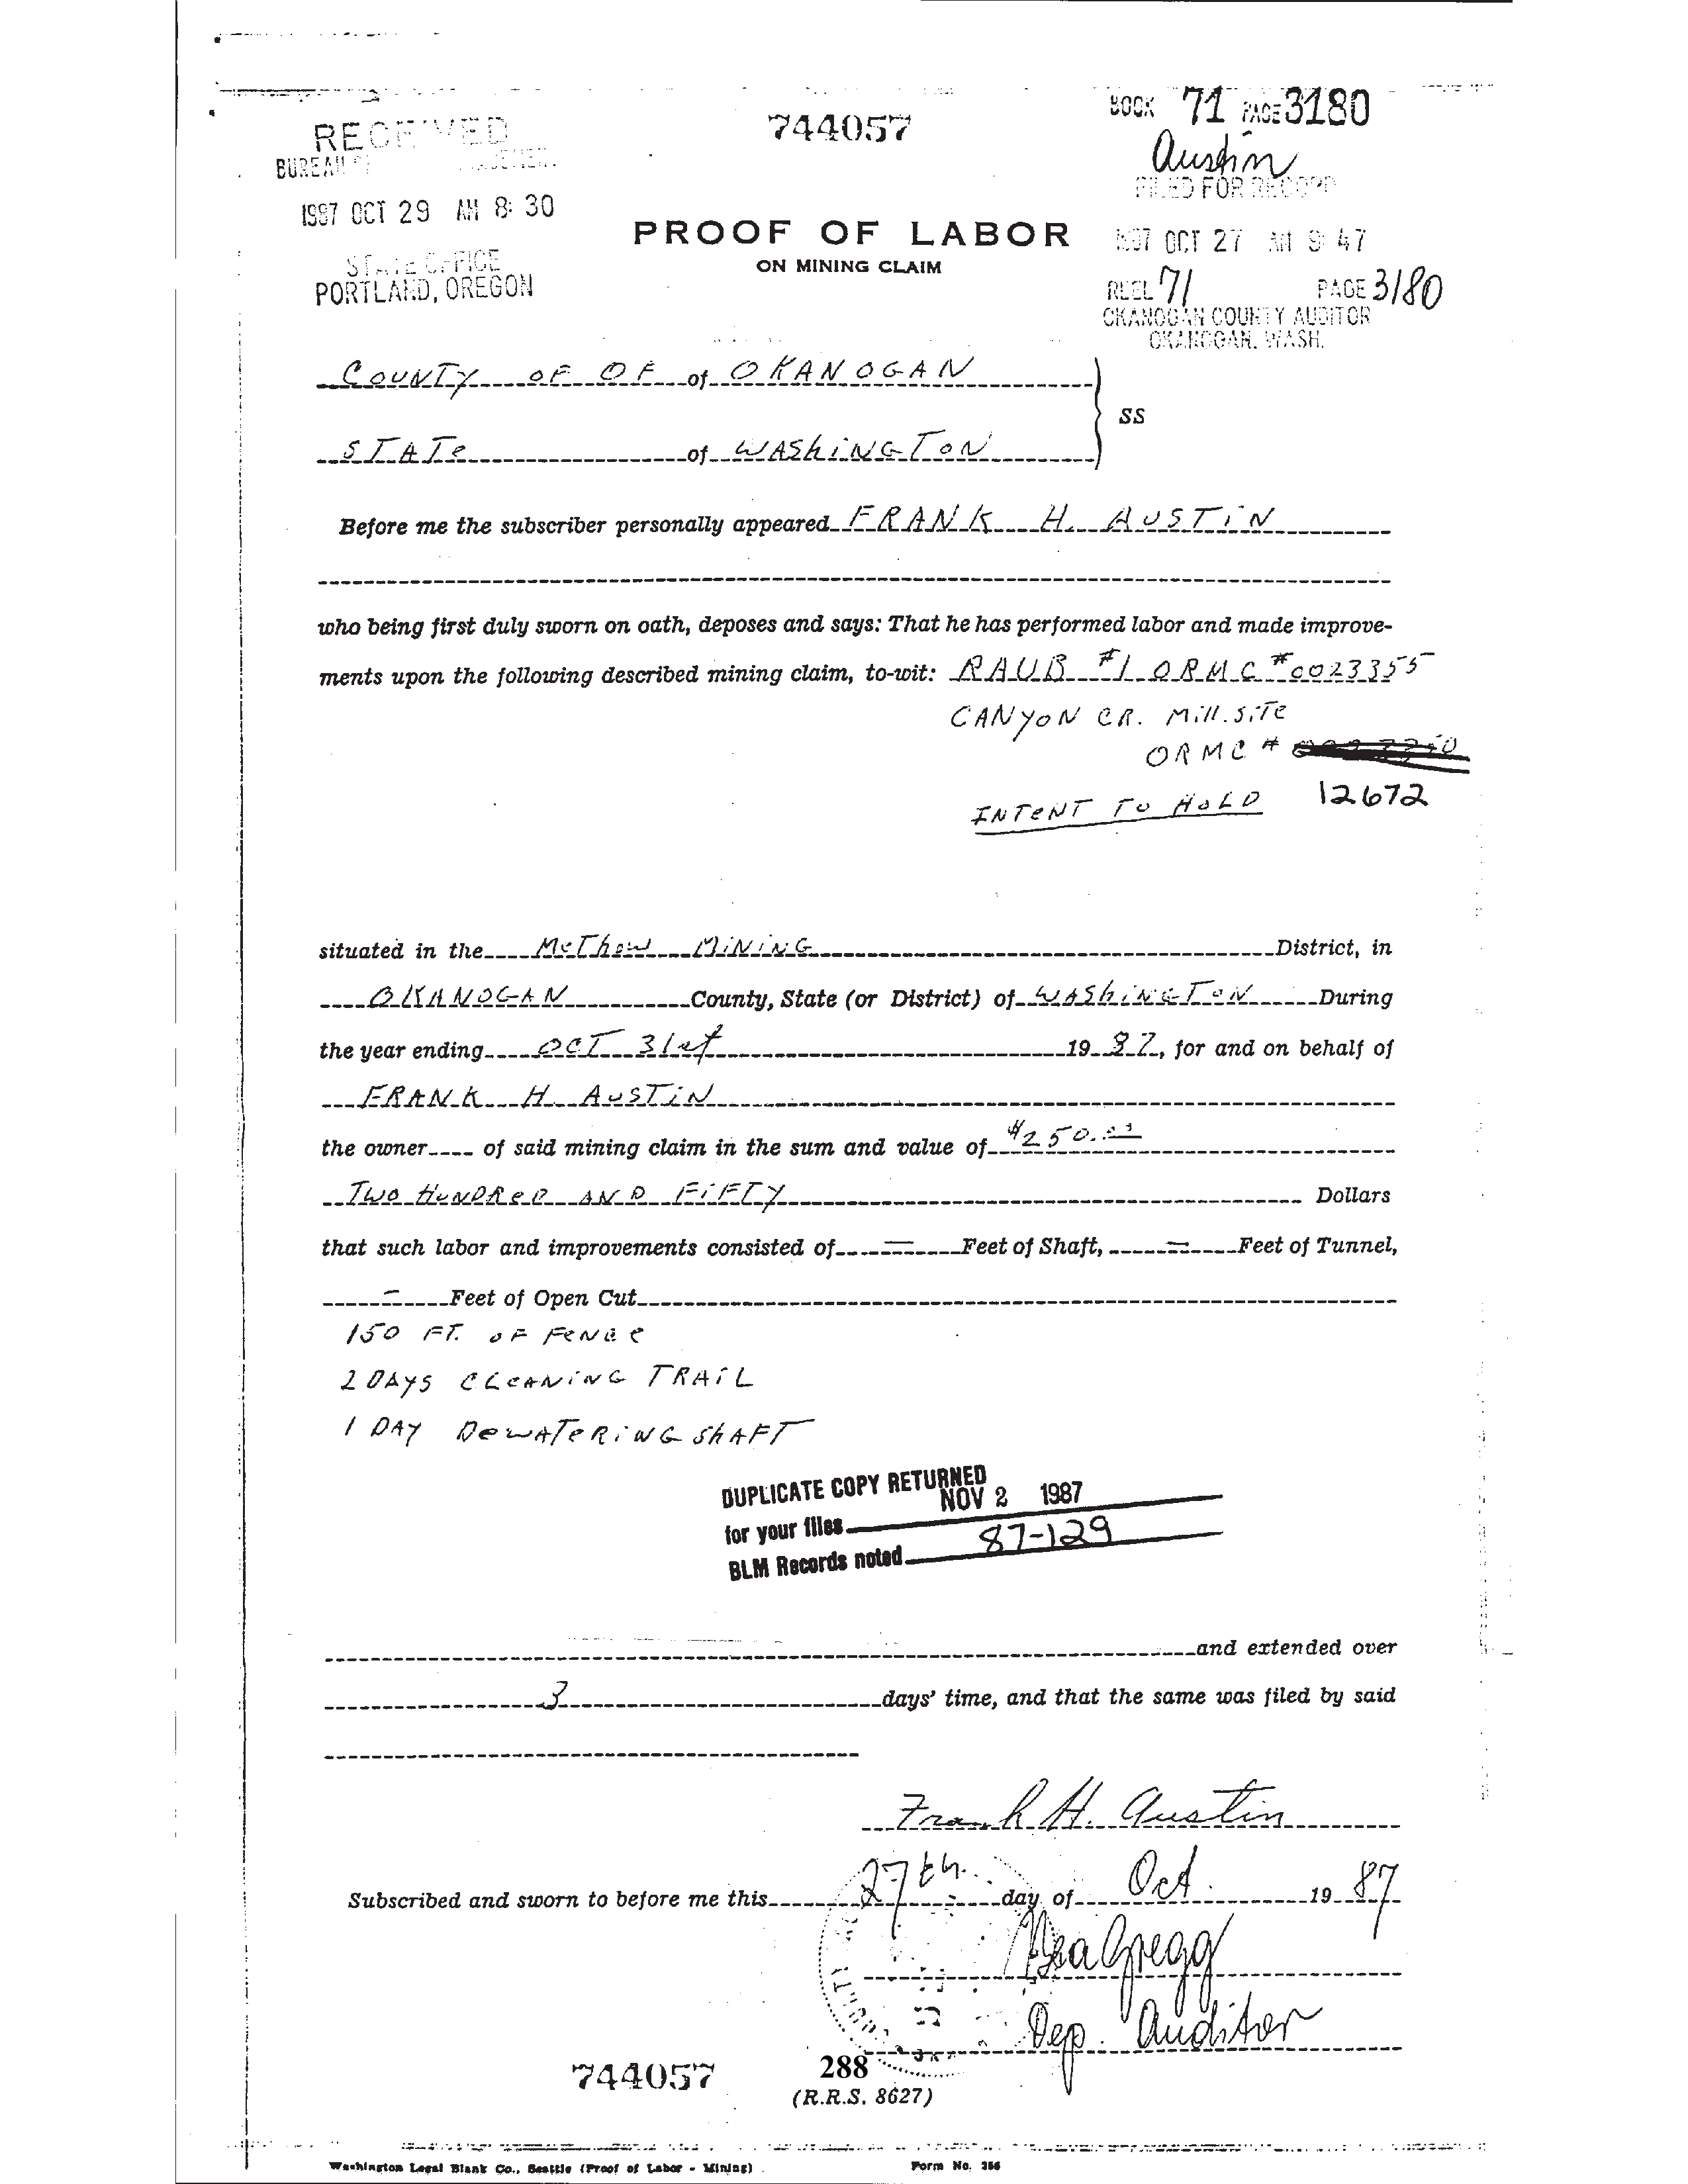 744057
BOOK 71 PAGE 3180
Austin
FILED FOR RECORD
RECEIVED
BUREAU
1987 OCT 29 AM 8:30
STATE OFFICE
PORTLAND, OREGON
PROOF OF LABOR
ON MINING CLAIM
1987 OCT 27 AM 9:47
REEL 71 PAGE 3180
OKANOGAN COUNTY AUDITOR
OKANOGAN, WASH.
COUNTY OF OF of OKANOGAN
SS
STATe of WAShiNGTON
Before me the subscriber personally appeared FRANK H. AUSTiN
who being first duly sworn on oath, deposes and says: That he has performed labor and made improve-
ments upon the following described mining claim, to-wit: RAUB #1 ORMC #0023355
CANYON CR. Mill.SiTe
ORMC #
INTeNT TO HOLD 12672
situated in the McThow MiNiNG District, in
OKANOGAN County, State (or District) of WAShiNGToN During
the year ending OCT 31st 19 87, for and on behalf of
FRANK H AUSTiN
the owner of said mining claim in the sum and value of $250.00
TWO HUNDReD AND FiFTY Dollars
that such labor and improvements consisted of - Feet of Shaft, - Feet of Tunnel,
- Feet of Open Cut
150 FT. OF FeNCe
2 DAYS CLeANiNG TRAiL
1 DAY DeWATeRiNG ShAFT
DUPLICATE COPY RETURNED
NOV 2 1987
for your files
87-129
BLM Records noted
and extended over
3 days' time, and that the same was filed by said
Frank H. Austin
Subscribed and sworn to before me this 27th day of Oct. 19 87
Gregg
Dep. Auditor
744057
288
(R.R.S. 8627)
Washington Legal Blank Co., Seattle (Proof of Labor - Mining) Form No. 256